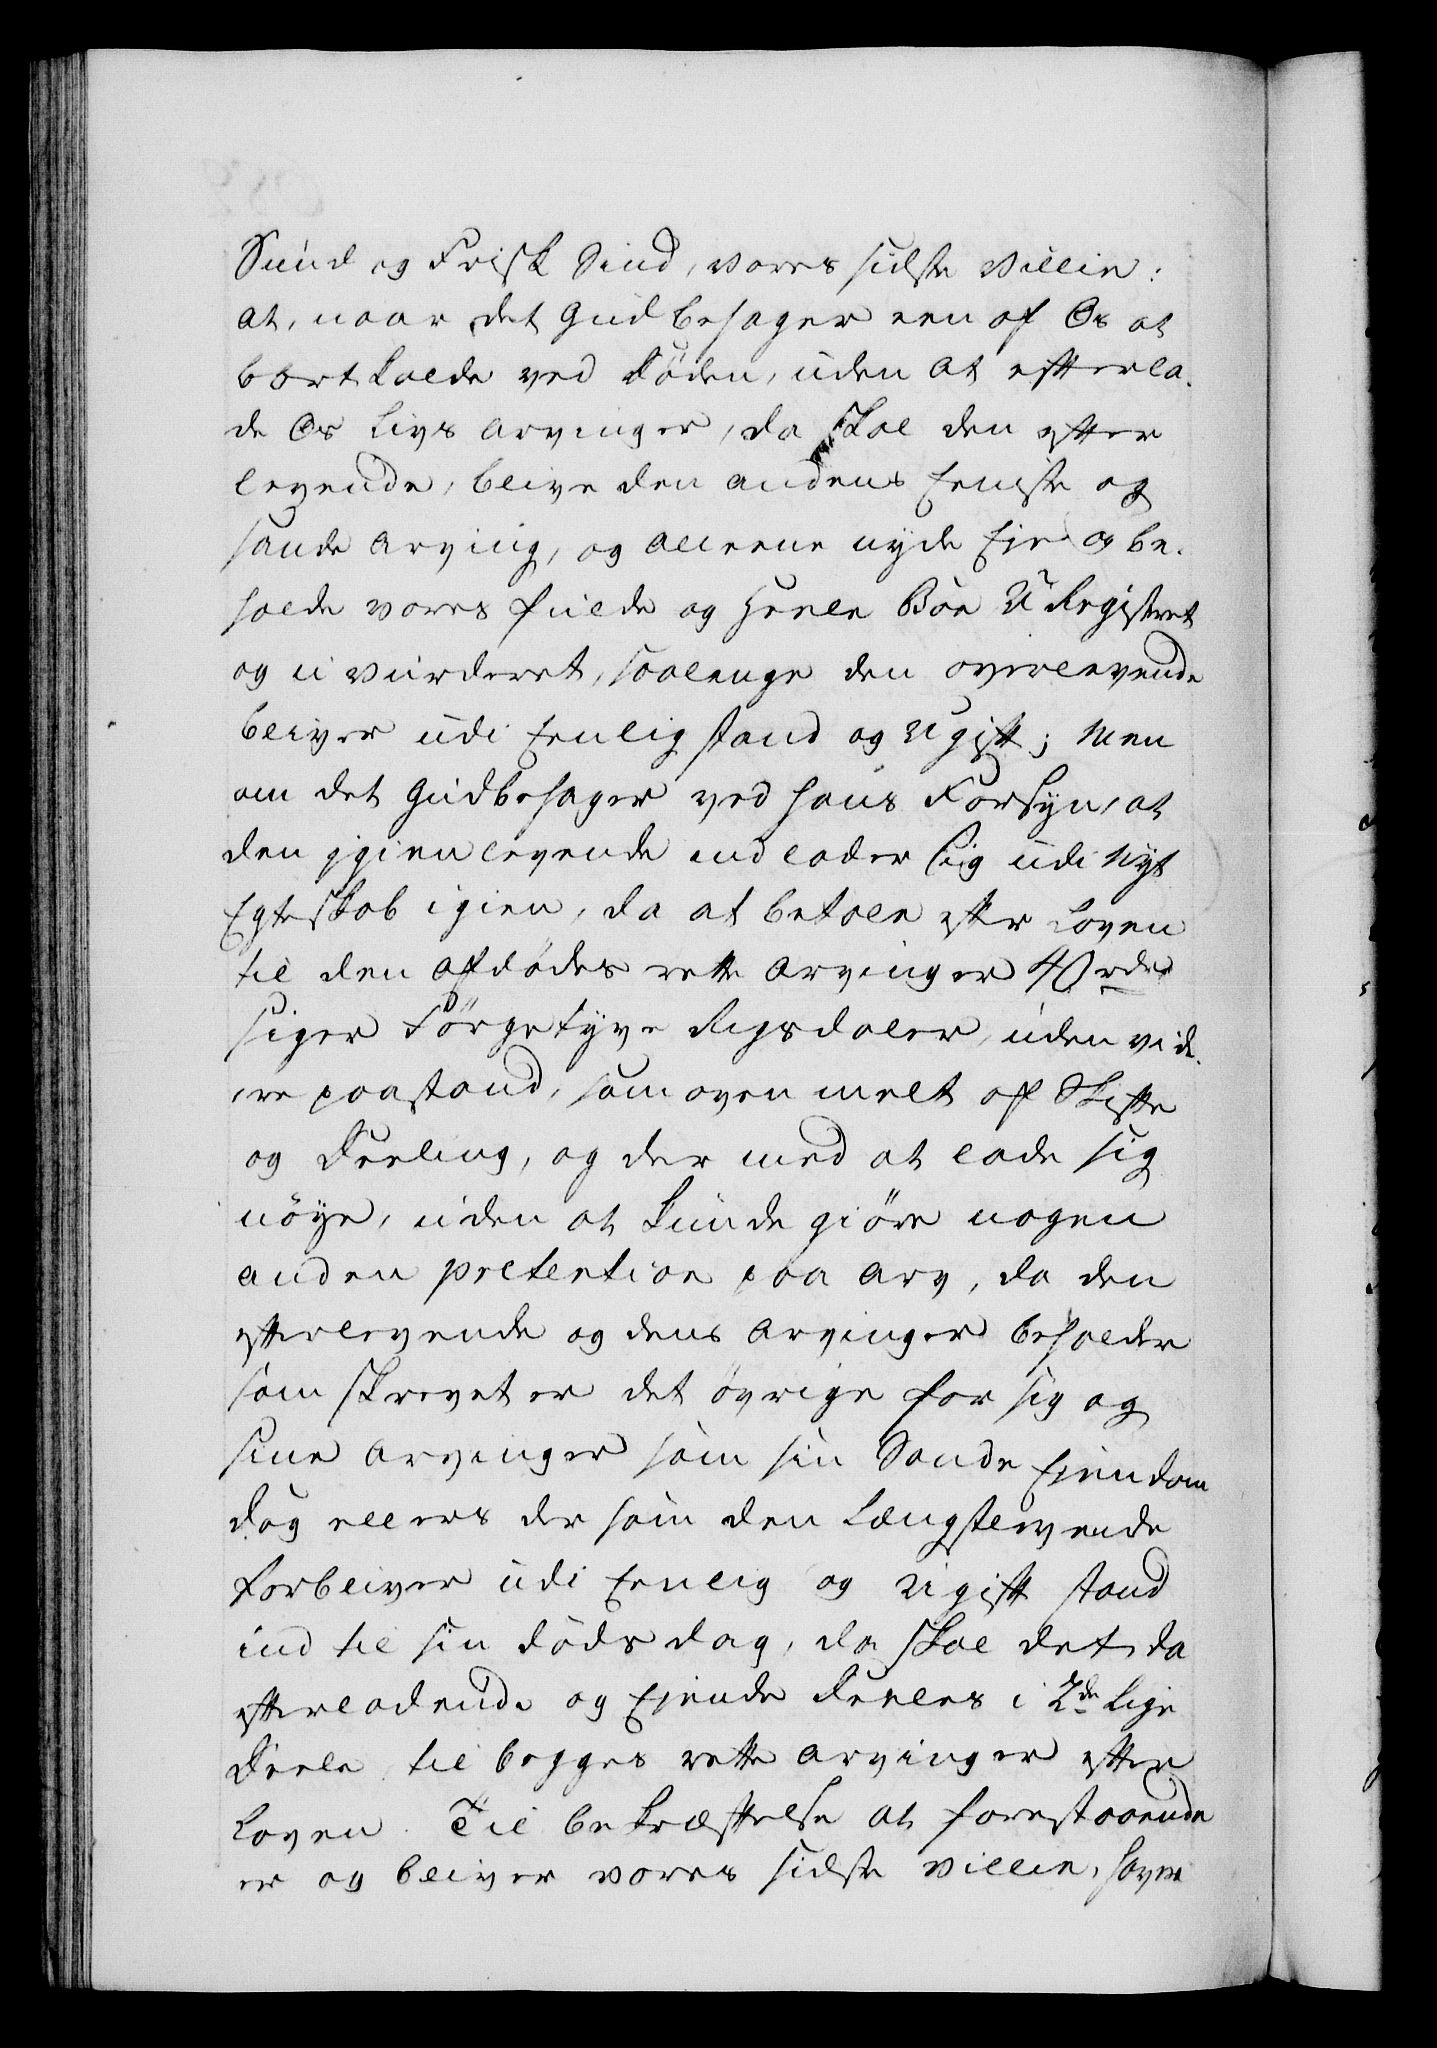 Sund og Frisk Sind, vores sidste Villie:
at, naar det Gud behager een af Os at
bortkalde ved Døden, uden at efterla-
de Os Livs Arvinger, da skal den efter
levende, blive den andens Eeniste og
sande Arving, og alleene nyde Eje og be-
holde vores fulde og Heele Boe URegistret
og uvurderet, saalænge den overlevende
bliver udi Eenlig stand og Ugift; Men
om det Gud behager ved hans Forsyn, at
den jgienlevende indlader sig udi Nyt
Egteskab igien, da at betale efter Loven
til den afdødes rette Arvinger 40 rdr
siger Førgetyve Rigsdaler, uden vid-
ere paastand, som oven melt af Skifte
og Deeling, og der med at lade sig
nøye, uden at kunde giøre nogen
anden pretention paa Arv, da den
efterlevende og dens Arvinger beholder
som skrevet er det øvrige for sig og
sine Arvinger som sin Sande Ejendom
dog ellers der som den Længstlevende
forbliver udi Eenlig og Ugift stand
ind til sin Døds dag, da skal det da
efterladende og Ejende Deeles i 2de Lige
Deele til begges rette Arvinger efter
Loven. Til bekræftelse at forestaaende
er og bliver vores sidste Villie, haver